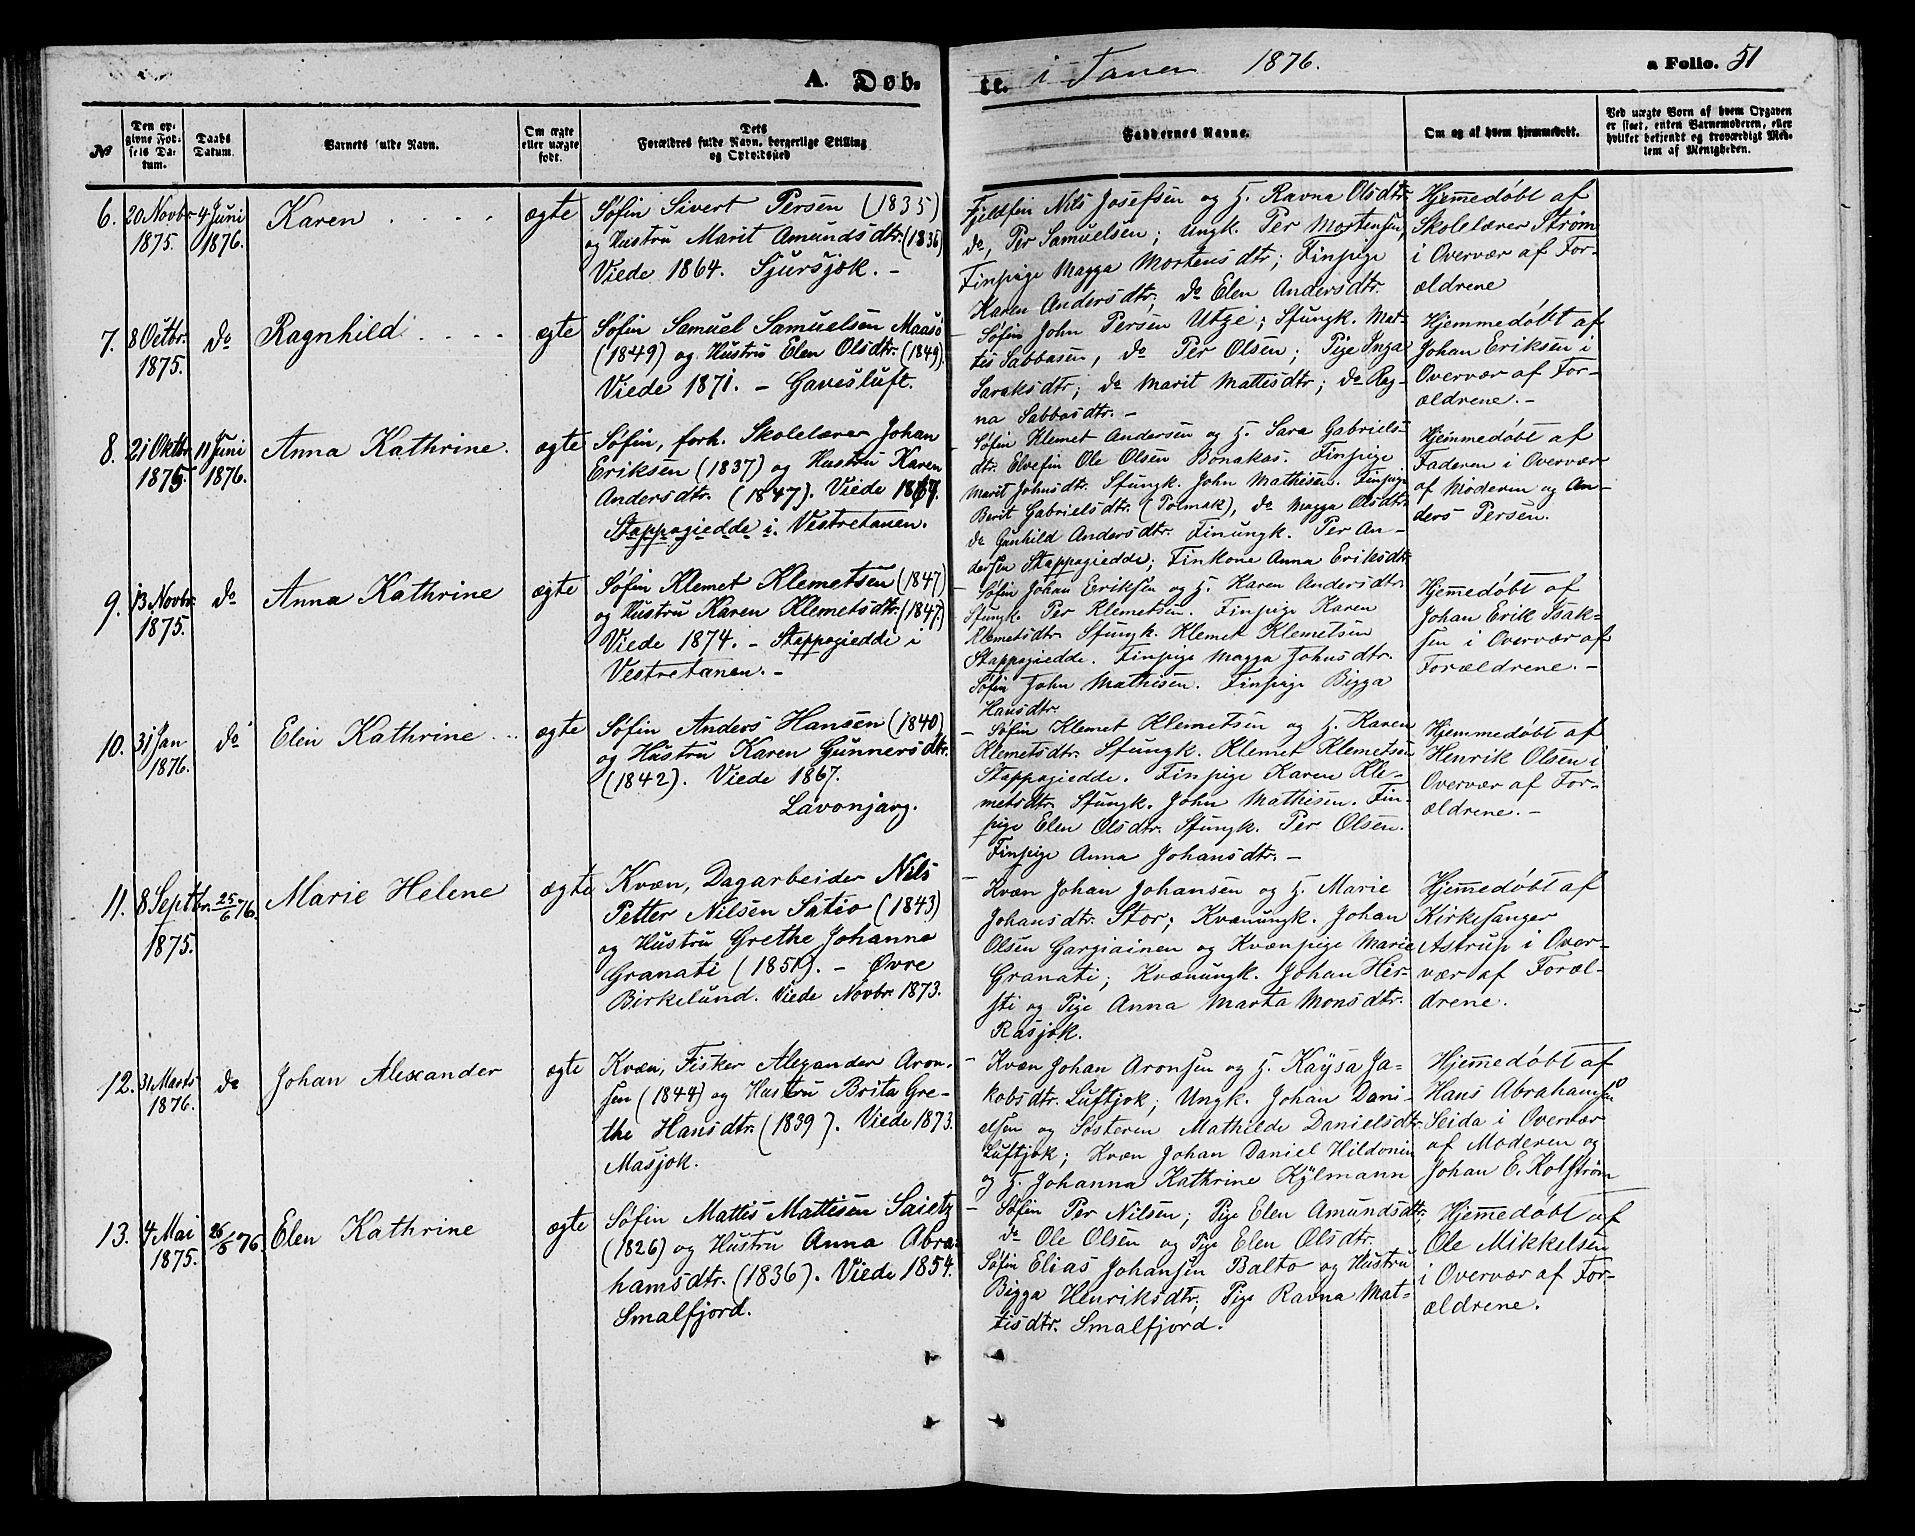 A. Døb.
te. i Tanen 1876.
a Folio. 51
No
Den opgivne Fødsels Datum.
Daabs Datum.
Barnets fulde Navn.
Om ægte eller uægte født.
Dets Forældres fulde Navn, borgerlige Stilling og Opholdssted
Faddernes Navne.
Om og af hvem hjemmedøbt.
Ved uægte Børn af hvem Opgaven er skeet, enten Barnemoderen, eller hvilket bekjendt og troværdigt Medlem af Menigheden.
6.
20 Novbr
1875.
4 Juni
1876.
Karen
ægte
Søfin Sivert Persen (1835)
og Hustru Marit Amundsdtr. (1836)
Viede 1864. Sjursjok. –
Fjeldfin Nils Josefsen og H. Ravna Olsdtr.
do, Per Samuelsen; Ungk. Per Mortensen,
Finpige Magga Mortensdtr; Finpige
Karen Andersdtr; do Elen Andersdtr.
Hjemmedøbt af
Skolelærer Strøm
i Overvær af For-
ældrene
7.
8 Octbr.
1875.
do
Ragnhild
ægte
Søfin Samuel Samuelsen Maasø
(1849) og Hustru Elen Olsdtr. (1849).
Viede 1871. – Gavesluft.
– Søfin John Persen Utze; Sfungk. Mat-
tis Sabbasen, do Per Olsen; Pige Inga
Saraksdtr; do Marit Mattisdtr; do Rag-
na Sabbasdtr. –
Hjemmedøbt af
Johan Eriksen i
Overvær af For-
ældrene. –
8.
21 Oktbr.
1875.
11 Juni
1876.
Anna Kathrine.
ægte
Søfin, forh. Skolelærer Johan
Eriksen (1837) og Hustru Karen
Andersdtr. (1847). Viede 1867.
Stappogiedde i Vestretanen.
– Søfin Klemet Andersen og H. Sara Gabriels-
dtr. Elvefin Ole Olsen Bonakas. Finpige
Marit Johnsdtr. Sfungk. John Mathisen. Finpige
Berit Gabrielsdtr. (Polmak), do Magga Olsdtr.
do Gunhild Andersdtr. Finungk. Per An-
dersen Stappogiedde; Finkone Anna Eriksdtr.
Hjemmedøbt af
Faderen i Overvær
af Moderen og An-
ders Persen.
9.
13 Novbr.
1875.
do
Anna Kathrine
ægte
Søfin Klemet Klemetsen (1847)
og Hustru Karen Klemetsdtr. (1847.)
Viede 1874. – Stappogiedde i
Vestretanen. –
– Søfin Johan Eeriksen og H. Karen Andersdtr.
Sfungk. Per Klemetsen. Finpige Karen
Klemetsdtr. Sfungk. Klemet Klemetsen
Stappogiedde. Finpige Magga Johnsdtr.
Søfin John Mathisen. Finpige Bigga
Hansdtr.
Hjemmedøbt af
Johan Erik Isak-
sen i Overvær af
Forældrene. –
10.
31 Jan
1876.
do
Elen Kathrine
ægte
Søfin Anders Hansen (1840)
og Hustru Karen Gunnersdtr.
(1842). Viede 1867.
Lavonjarg.
– Søfin Klemet Klemetsen og H. Karen
Klemetsdtr. Sfungk. Klemet Klemetsen
Stappogiedde. Finpige Karen Kle-
metsdtr. Sfungk. John Mathisen. Fin-
pige Elen Olsdtr. Sfungk. Per Olsen.
Finpige Anna Johansdtr. –
Hjemmedøbt af
Henrik Olsen i
Overvær af For-
ældrene. –
11.
8 Septbr.
1875.
25/6 76.
Marie Helene
ægte
Kvæn, Dagarbeider Nils
Petter Nilsen Satio (1843)
og Hustru Grethe Johanne
Granati (1851). – Øvre
Birkelund. Viede Novbr. 1873.
– Kvæn Johan Johansen og H. Marie
Johansdtr. Stor; Kvænungk. Johan
Olsen Gargiainen og Kvænpige Marie
Granati; Kvænungk. Johan Hir-
sti og Pige Anna Marta Monsdtr.
Rasjok.
Hjemmedøbt af
Kirkesanger
Astrup i Over-
vær af Foræl-
drene.
12.
31 Marts
1876.
do
Johan Alexander
ægte
Kvæn, Fisker Alexander Aron-
sen (1844) og Hustru Brita Gre-
the Hansdtr. (1839). Viede 1873.
Masjok.
– Kvæn Johan Aronsen og H. Kaysa Ja-
kobsdtr. Luftjok; Ungk. Johan Dani-
elsen og Søsteren Mathilde Danielsdtr.
Luftjok; Kvæn Johan Daniel Hildonin
og H. Johanna Kathrine Kylmann
Hjemmedøbt af
Hans Abrahamsen
Seida i Overvær
af Moderen og
Johan E. Kolstrøm
13.
4 Mai
1875.
26/5 76.
Elen Kathrine
ægte
Søfin Mattis Mattisen Saietz
(1826) og Hustru Anna Abra-
hamsdtr. (1836). Viede 1854.
Smalfjord.
– Søfin Per Nilsen; Pige Elen Amundsdtr;
do Ole Olsen og Pige Elen Olsdtr.
Søfin Elias Johansen Balto og Hustru
Bigga Henriksdtr; Pige Ravna Mat-
tisdtr. Smalfjord.
Hjemmedøbt af
Ole Mikkelsen
i Overvær af For-
ældrene.